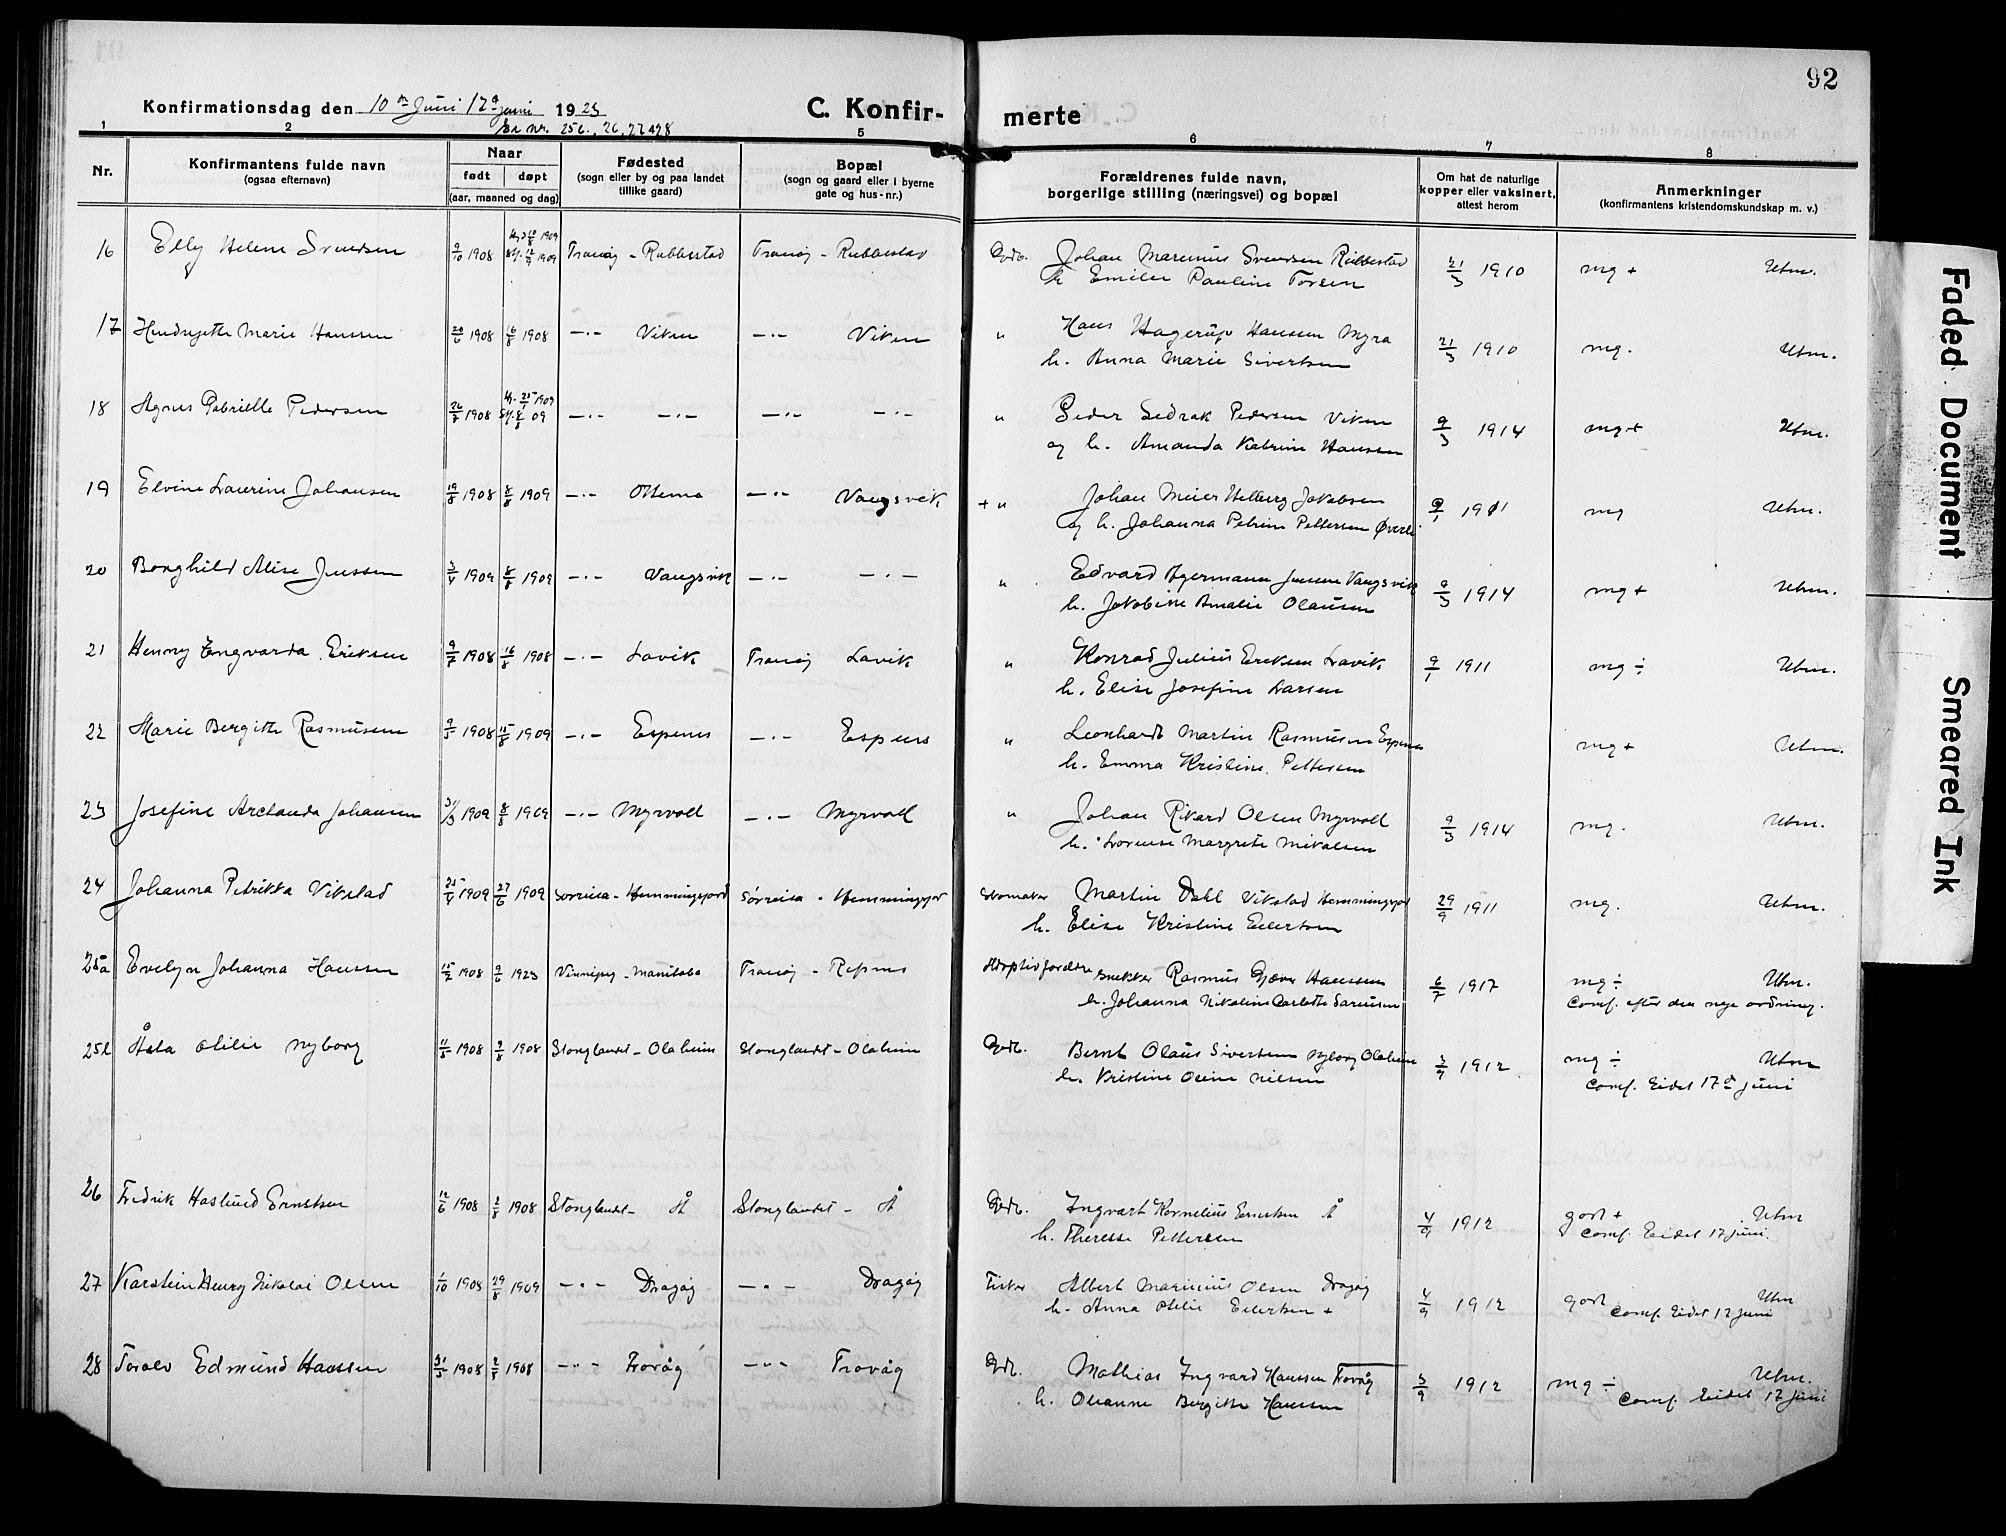 92
Konfirmationsdag den 10 de Juni 17 d juni 1923
C. Konfir-
merte
for nr. 25b., 26, 27 28
1 2 5 6 7 8
Nr.
Konfirmantens fulde navn
(ogsaa efternavn)
Naar
født døpt
(aar, maaned og dag)
Fødested
(sogn eller by og paa landet
tillike gaard)
Bopæl
(sogn og gaard eller i byerne
gate og hus-nr.)
Forældrenes fulde navn,
borgerlige stilling (næringsvei) og bopæl
Om hat de naturlige
kopper eller vaksinert,
attest herom
Anmerkninger
(konfirmantens kristendomskundskap m. v.)
16 Elly Helene Svendsen 9/10 1908 1909 1909 Tranøy - Rubbestad Tranøy - Rubbestad Gdb. Johan Marenius Svendsen Rubbestad 21/3 1910 mg + Utm.
h. Emilie Pauline Torsen
17 Hendrijette Marie Hanssen 20/6 1908 16/8 1908 -"- Viken -"- Viken " Hans Hagerup Hansen Myra 21/3 1910 mg. Utm.
h. Anna Marie Sivertsen
18 Agnes Gabrielle Pedersen 26/7 1908 1909 09 -"- -"- -"- -"- " Peder Sedrak Pedersen Viken 9/3 1914 mg + Utm.
og h. Amanda Katrine Hansen
19 Elvine Laurine Johansen 19/8 1908 8/8 1909 -"- Ottema -"- Vangsvik + " Johan Meier Helberg Jakobsen 9/1 1911 mg Utm.
og h. Johanna Petrine Pettersen Øverli
20 Borghild Alise Jenssen 3/4 1909 8/8 1909 -"- Vangsvik -"- -"- " Edvard Agermann Jensen Vangsvik 9/3 1914 mg + Utm.
h. Jakobine Amalie Olausen
21 Henny Engvarda Eriksen 9/7 1908 16/8 1908 -"- Lavik Tranøj Lavik " Konrad Julius Eriksen Lavik 9/1 1911 mg ÷ Utm.
h. Elise Josefine Larsen
22 Marie Bergithe Rasmusen 9/5 1908 15/8 1909 -"- Espenes -"- Espenes " Leonhardt Martin Rasmusen Espenes mg + Utm.
h. Emma Kristine Pettersen
23 Josefine Arctanda Johansen 31/3 1909 8/8 1909 -"- Myrvoll -"- Myrvoll " Johan Rikard Olsen Myrvoll 9/3 1914 mg. Utm.
h. Lovense Margrete Mikalsen
24 Johanna Petrikka Vikstad 25/4 1909 27/6 1909 Sørreisa - Hemmingsfjord Sørreisa - Hemmingsfjor Skomaker Martin Dahl Vikstad Hemmingsfjor 29/9 1911 mg. Utm.
h. Elise Kristine Eilertsen
25a Evelyn Johanna Hanssen 15/2 1908 9/6 1923 Vinnipeg - Manitoba Tranøj - Refsnes Adoptivforeldre snekker Rasmus Gjæver Hanssen 6/7 1917 mg ÷ Utm.
h. Johanna Nikoline Carlotte Sørensen Comf. efter den nye ordning.
25b Åsta Otilie Nyborg 11/5 1908 2/8 1908 Stonglandet - Olaheim Stonglandet - Olaheim Gdb. Bernt Olaus Sivertsen Nyborg Olaheim 3/9 1912 mg ÷ Utm
h. Kristine Oline Nilsen Comf. Eidet 17 d juni
26 Fredrik Haslund Ernstsen 12/6 1908 2/8 1908 Stonglandet - Å Stonglandet - Å Gdb. Ingvart Kornelius Ernstsen Å 4/9 1912 godt + Utm
h. Therese Pettersen Comf. Eidet 17 juni.
27 Karstein Henry Nikolai Olsen 1/10 1908 29/8 1909 -"- Dragøj -"- Dragøj Fisker Albert Marinius Olsen Dragøj 4/9 1912 godt Utm
h. Anna Otelie Eilertsen + Comf. Eidet 17 juni
28 Toralv Edmund Hanssen 31/3 1908 2/8 1908 -"- Trovåg -"- Trovåg Gdb. Mathias Ingvard Hanssen Trovåg 3/9 1912 mg ÷ Utm.
h. Oleanne Bergitte Hanssen Comf. Eidet 17 juni
Faded Document
Smeared Ink